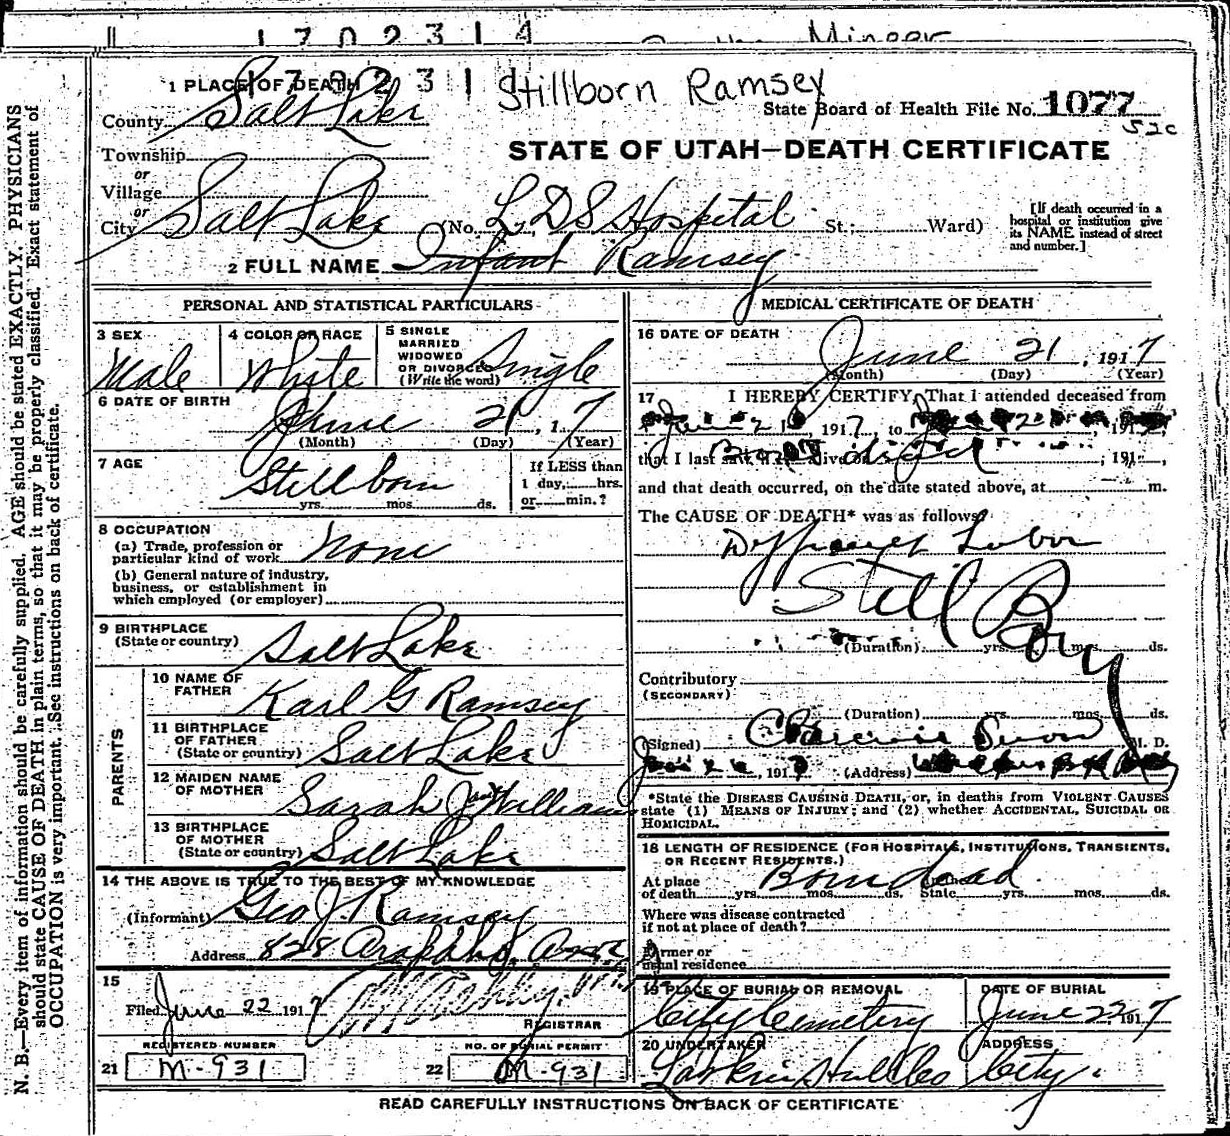 1 7 0 2 3 1 4
1 PLACE OF DEATH
1 7 0 2 3 1
Stillborn Ramsey
State Board of Health File No. 1077
52c
County Salt Lake
Township
or
Village
or
City Salt Lake (No. L.D.S Hospital St.; Ward)
[If death occurred in a
hospital or institution give
its NAME instead of street
and number.]
STATE OF UTAH—DEATH CERTIFICATE
2 FULL NAME Infant Ramsey
PERSONAL AND STATISTICAL PARTICULARS
3 SEX
Male
4 COLOR OR RACE
White
5 SINGLE
MARRIED
WIDOWED
OR DIVORCED
(Write the word)
Single
6 DATE OF BIRTH
June 21, 1 7
(Month) (Day) (Year)
7 AGE
Stillborn
yrs. mos. ds.
If LESS than
1 day, hrs.
or min.?
8 OCCUPATION
(a) Trade, profession or
particular kind of work None
(b) General nature of industry,
business, or establishment in
which employed (or employer)
9 BIRTHPLACE
(State or country) Salt Lake
PARENTS
10 NAME OF
FATHER Karl G Ramsey
11 BIRTHPLACE
OF FATHER
(State or country) Salt Lake
12 MAIDEN NAME
OF MOTHER Sarah Williams
13 BIRTHPLACE
OF MOTHER
(State or country) Salt Lake
14 THE ABOVE IS TRUE TO THE BEST OF MY KNOWLEDGE
(Informant) Geo J. Ramsey
Address 828 Arapahoe
15
Filed June 22 1917
REGISTRAR
REGISTERED NUMBER
21 M-931
NO. OF BURIAL PERMIT
22 M-931
MEDICAL CERTIFICATE OF DEATH
16 DATE OF DEATH
June 21, 1917
(Month) (Day) (Year)
17 I HEREBY CERTIFY, That I attended deceased from
June 21, 1917, to 191
that I last saw alive on Born dead, 191
and that death occurred, on the date stated above, at m.
The CAUSE OF DEATH* was as follows:
Labor
Still Born
(Duration) yrs. mos. ds.
Contributory
(SECONDARY)
(Duration) yrs. mos. ds.
(Signed) M. D.
191 (Address)
*State the DISEASE CAUSING DEATH, or, in deaths from VIOLENT CAUSES
state (1) MEANS OF INJURY; and (2) whether ACCIDENTAL, SUICIDAL OR
HOMICIDAL.
18 LENGTH OF RESIDENCE (FOR HOSPITALS, INSTITUTIONS, TRANSIENTS,
OR RECENT RESIDENTS.)
At place
of death yrs. mos. ds. State yrs. mos. ds.
Born dead
Where was disease contracted
if not at place of death?
Former or
usual residence
19 PLACE OF BURIAL OR REMOVAL
City Cemetery
DATE OF BURIAL
June 22 1917
20 UNDERTAKER
Larkin Hull Co
ADDRESS
City.
READ CAREFULLY INSTRUCTIONS ON BACK OF CERTIFICATE
N. B.—Every item of information should be carefully supplied. AGE should be stated EXACTLY. PHYSICIANS
should state CAUSE OF DEATH in plain terms, so that it may be properly classified. Exact statement of
OCCUPATION is very important. See instructions on back of certificate.